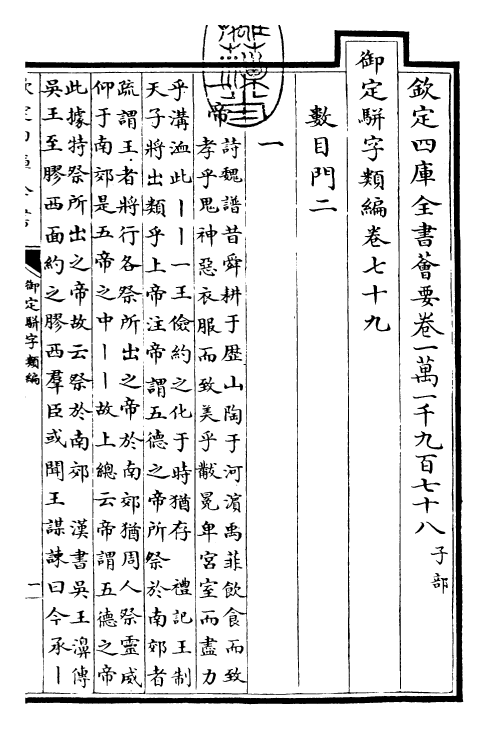 欽定四庫全書薈要卷一萬一千九百七十八 子部
御定駢字類編卷七十九
數目門二
一
帝
詩魏譜昔舜耕于歴山陶于河濱禹菲飲食而致
孝乎鬼神惡衣服而致美乎黻冕卑宮室而盡力
乎溝洫此丨丨一王儉約之化于時猶存 禮記王制
天子將出類乎上帝注帝謂五德之帝所祭於南郊者
疏謂王者將行各祭所出之帝於南郊猶周人祭靈威
仰于南郊是五帝之中丨丨故上總云帝謂五德之帝
此據特祭所出之帝故云祭於南郊 漢書吳王濞傳
吳王至膠西面約之膠西羣臣或聞王謀諫曰今承丨
御定駢字類編
一